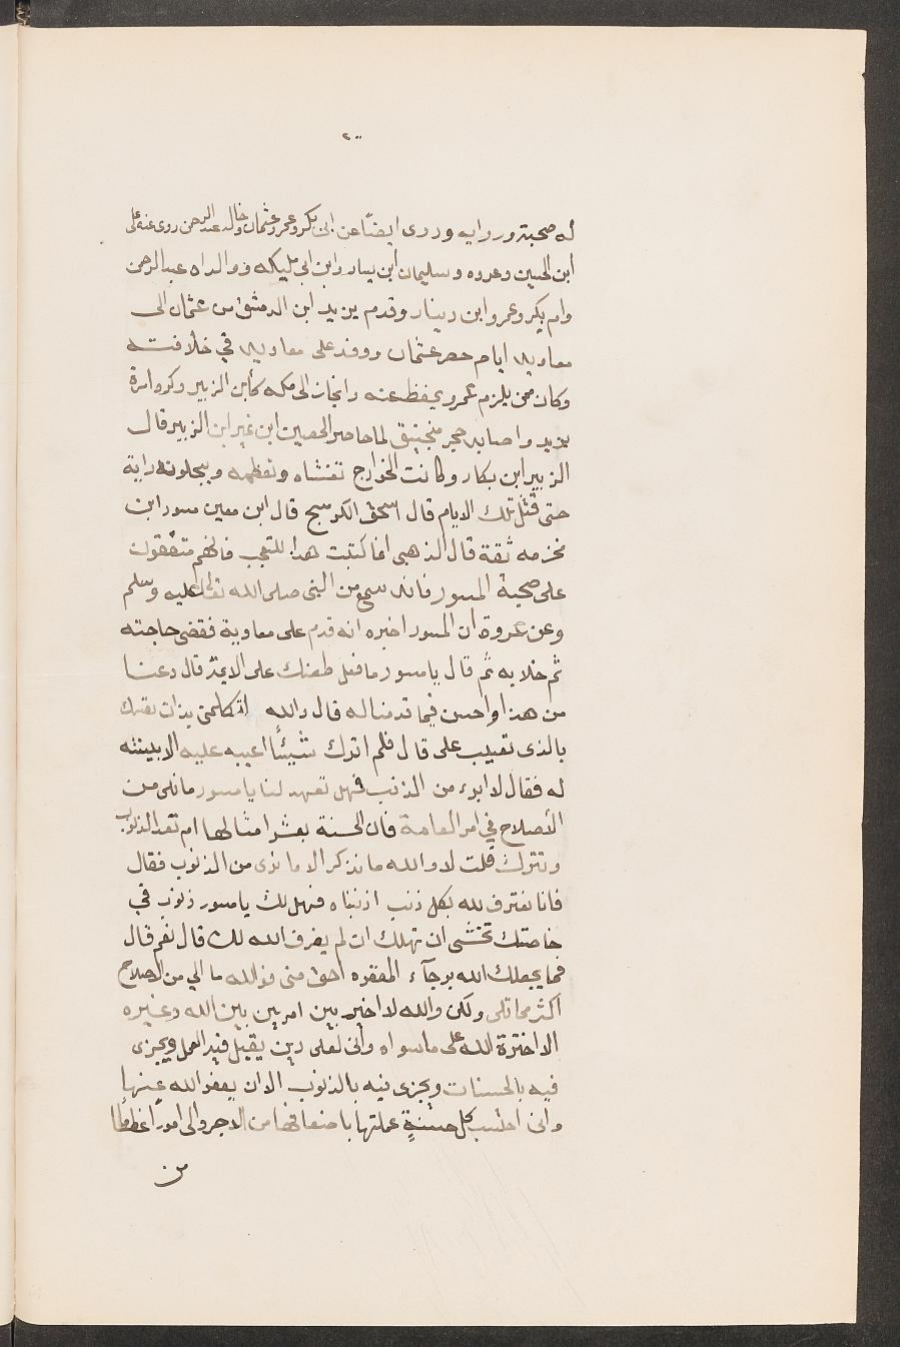 ٢٠٠
له صحبة ورواية وروى ايضًا عن ابى بكر وعمر وعثمان وخاله عبد الرحمن روى عنه على
ابن الحسين وعروه وسليمان ابن يسار وابن ابى مليكه وولداه عبد الرحمن
وام بكر وعمرو ابن دينار وقدم بريد ابن الدمشق من عثمان الى
معاويه ايام حصر عثمان ووفد على معاويه في خلافته
وكان ممن يلزم عمر ويحفظ عنه وانحاز الى مكه كابن الزبير وكره امرة
يزيد واصابه حجر منجنيق لما حاصر الحصين ابن نمير ابن الزبير قال
الزبير ابن بكار وكانت الخوارج تغشاه وتعظمه ويبجلونه راية
حتى قتل تلك الايام قال اسحق الكوسج قال ابن معين مسور ابن
مخزمه ثقة قال الذهبى انما كتبت هذا للتعجب فانهم متفقون
على صحبة المسور فانه سمع من النبى صلى الله تعالى عليه وسلم
وعن عروة ان المسور اخبره انه قدم على معاوية فقضى حاجته
ثم خلا به ثم قال يا مسور ما فعل طعنك على الايمة قال دعنا
من هذا واحسن فيما قدمنا له قال والله لتكلمنى بذات نفسك
بالذى تعيب على قال فلم اترك شيئًا اعيبه عليه الا بينته
له فقال لا ابرء من الذنب فهل تعهد لنا يا مسور ما نلى من
الاصلاح في امر العامة فان الحسنة بعشر امثالها ام تعد الذنوب
وتترك قلت لا والله ما نذكر الا ما نرى من الذنوب فقال
فانا نعترف لله بكل ذنب اذنبناه فهل لك يا مسور ذنوب في
خاصتك تخشى ان تهلك ان لم يغرف الله لك قال نعم قال
فما يجعلك الله برجآء المغفره احق منى فوالله ما الي من الاصلاح
اكثر مما تلى ولكن والله لا اخير بين امرين بين الله وغيره
الا اخترة لله على ما سواه وانى لعلى دين يقبل فيه العمل ويجزى
فيه بالحسنات ويجزى فيه بالذنوب الا ان يعفو الله عنها
وانى احتسب كل حسنةٍ عملتها باضعافها من الاجر والى امورًا عظامًا
من